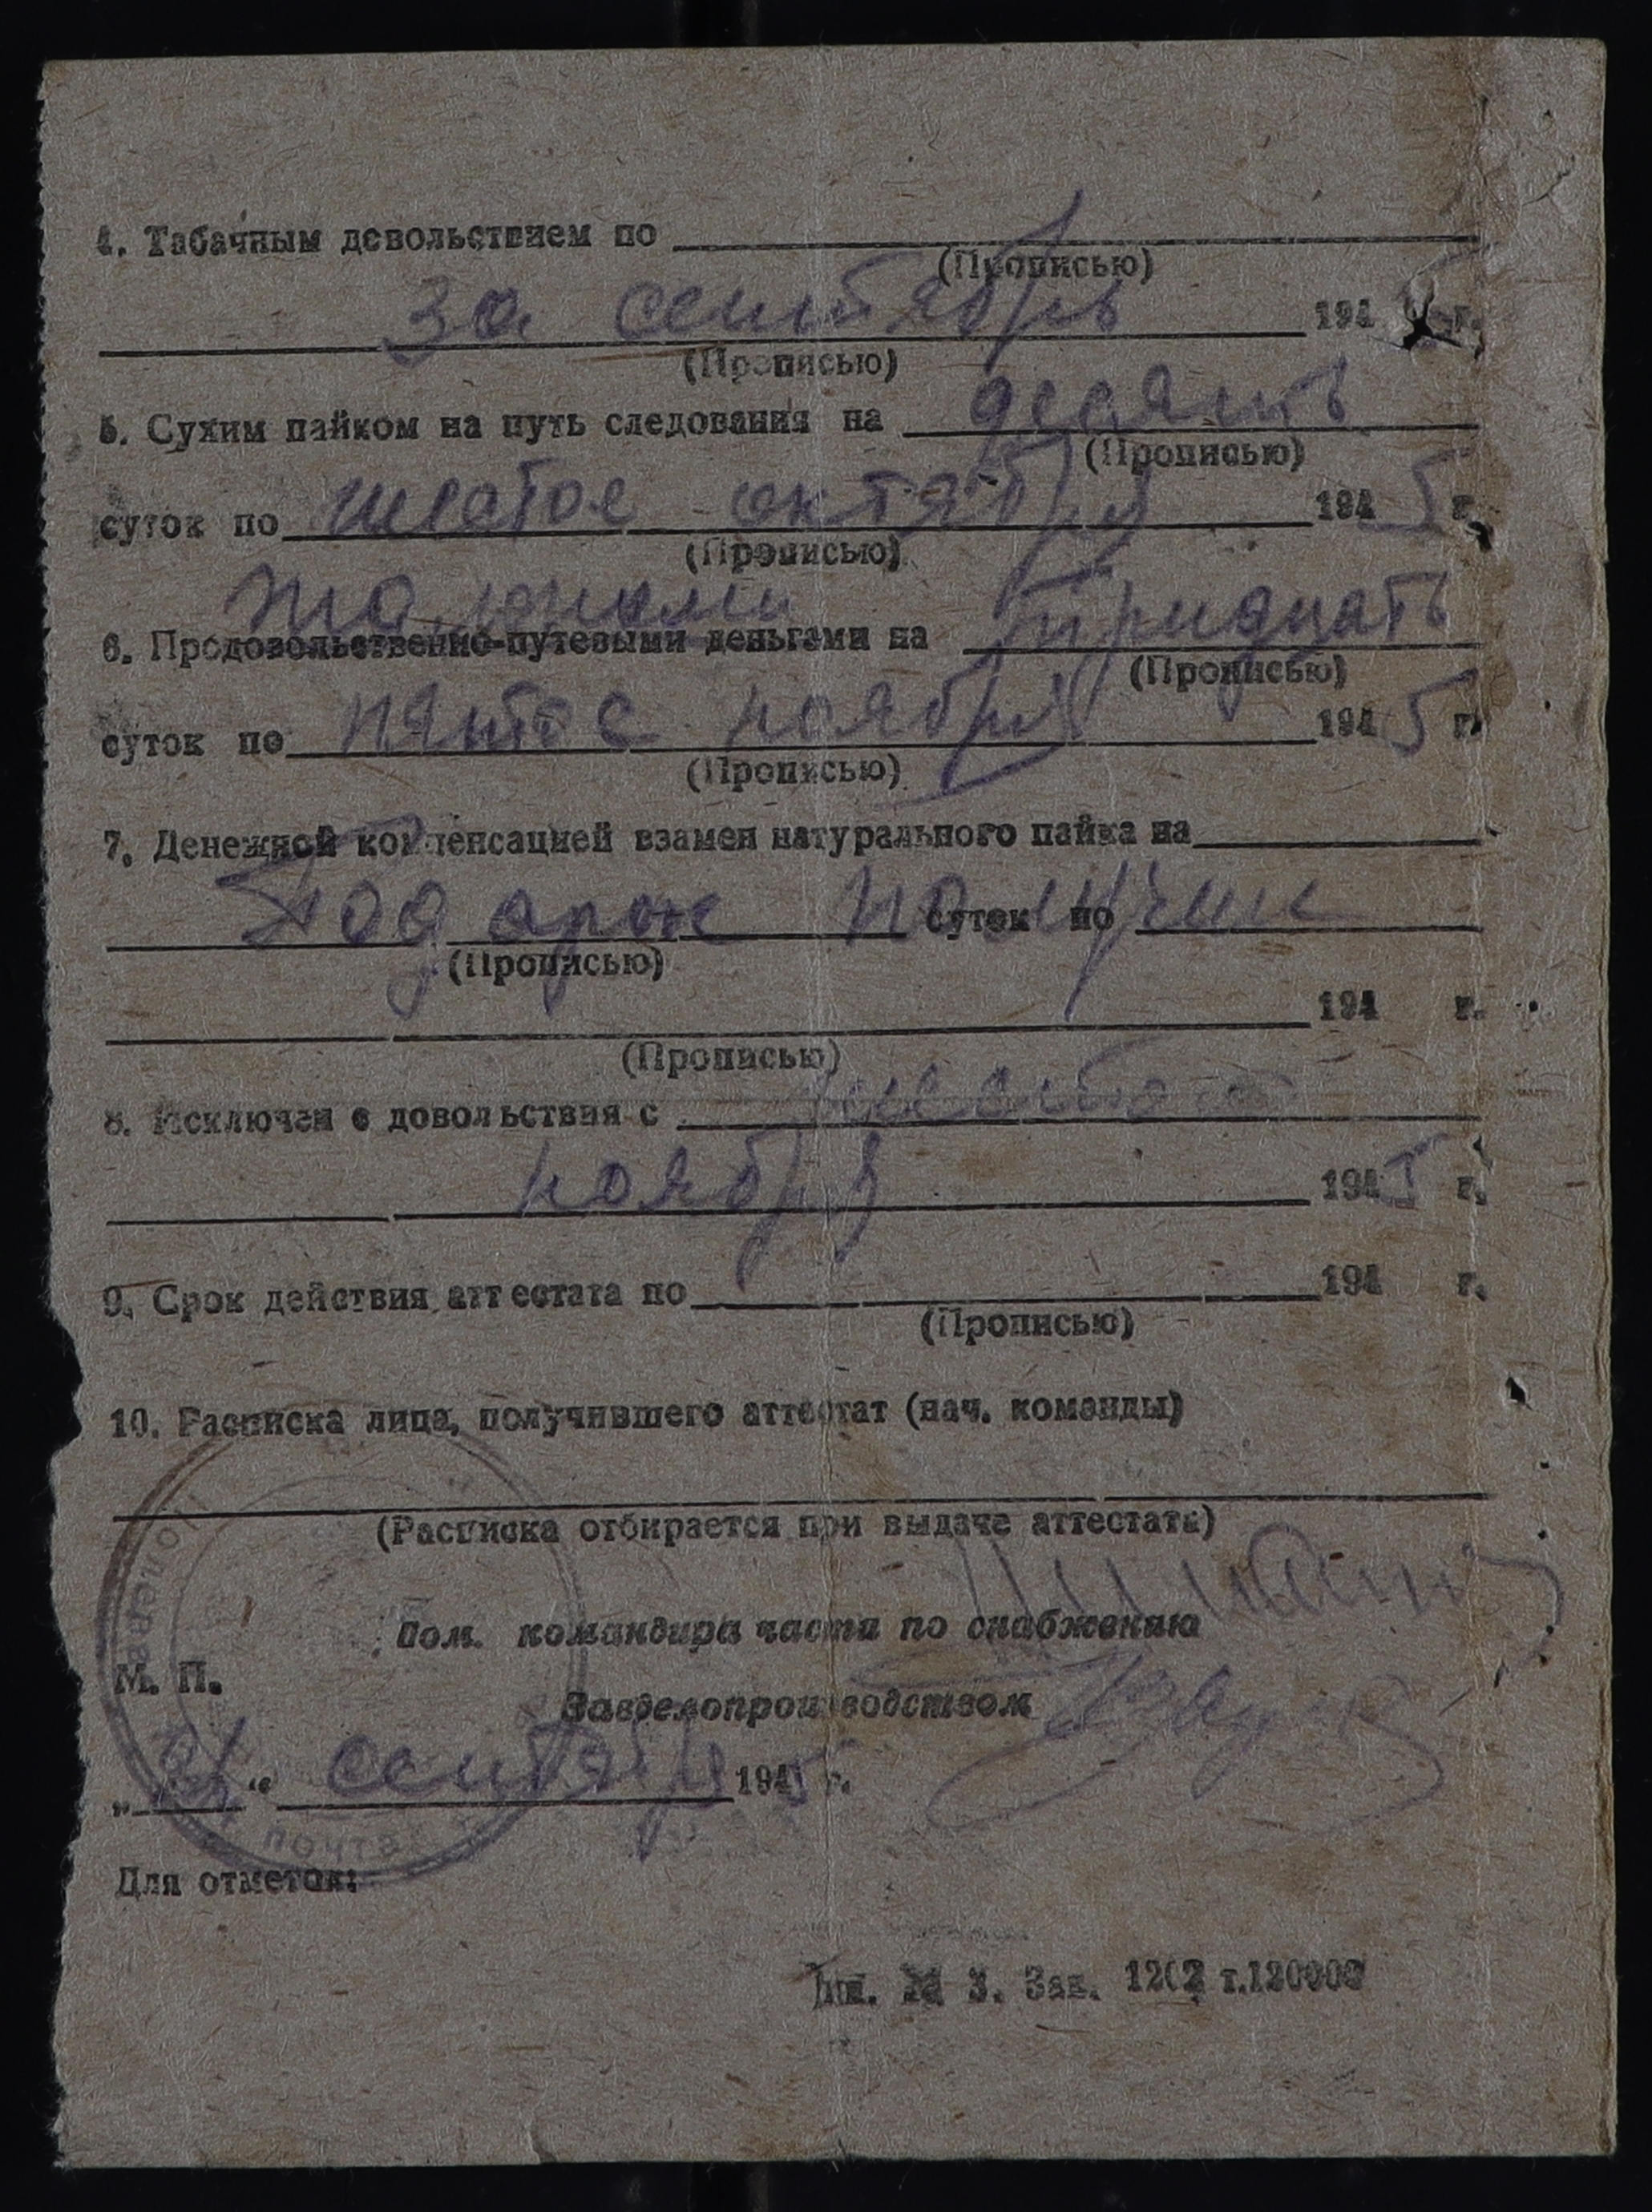 4. Табачным довольствием по
(Прописью)
за сентябрь 1945 г.
(Прописью)
5. Сухим пайком на путь следования на десять
(Прописью)
суток по шестое октября 1945 г.
(Прописью)
талонами
6. Продовольственно-путевыми деньгами на тридцать
(Прописью)
суток по пятое ноября 1945 г.
(Прописью)
7. Денежной компенсацией взамен натурального пайка на
Подарок получил суток по
(Прописью)
194 г.
(Прописью)
8. Исключен с довольствия с шестого
ноября 1945 г.
9. Срок действия аттестата по 194 г.
(Прописью)
10. Расписка лица, получившего аттестат (нач. команды)
(Расписка отбирается при выдаче аттестата)
Пом. командира части по снабжению
М. П.
Завделопроизводством
" " сентября 1945 г.
Полевая
почта
Для отметок:
Тип. № 3. Зак. 1202 т.120000